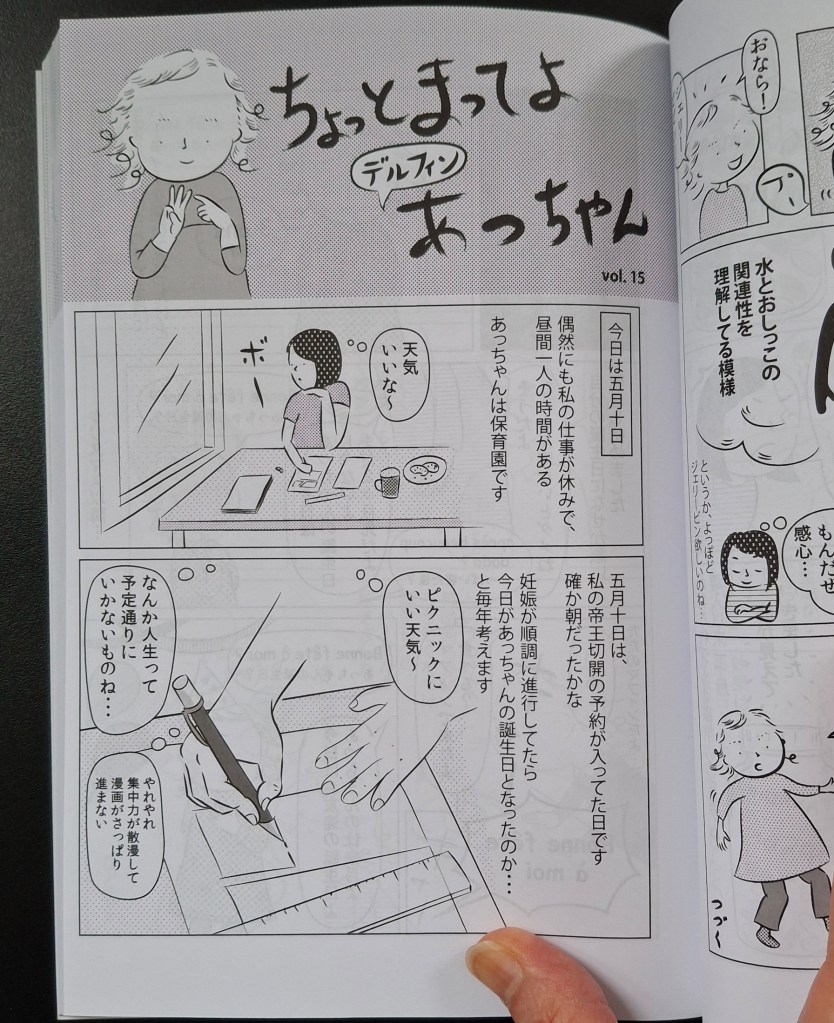 ちょっとまってよ
デルフィン
あっちゃん
vol. 15
今日は五月十日
偶然にも私の仕事が休みで、
昼間一人の時間がある
あっちゃんは保育園です
天気
いいな〜
ボー
五月十日は、
私の帝王切開の予約が入ってた日です
確か朝だったかな
妊娠が順調に進行してたら
今日があっちゃんの誕生日となったのか…
と毎年考えます
ピクニックに
いい天気〜
なんか人生って
予定通りに
いかないものね…
やれやれ
集中力が散漫して
漫画がさっぱり
進まない
おなら！
ジェリー
プー
水とおしっこの
関連性を
理解してる模様
というか、よっぽど
ジェリービン欲しいのね…
もんだぜ
感心…
つづく